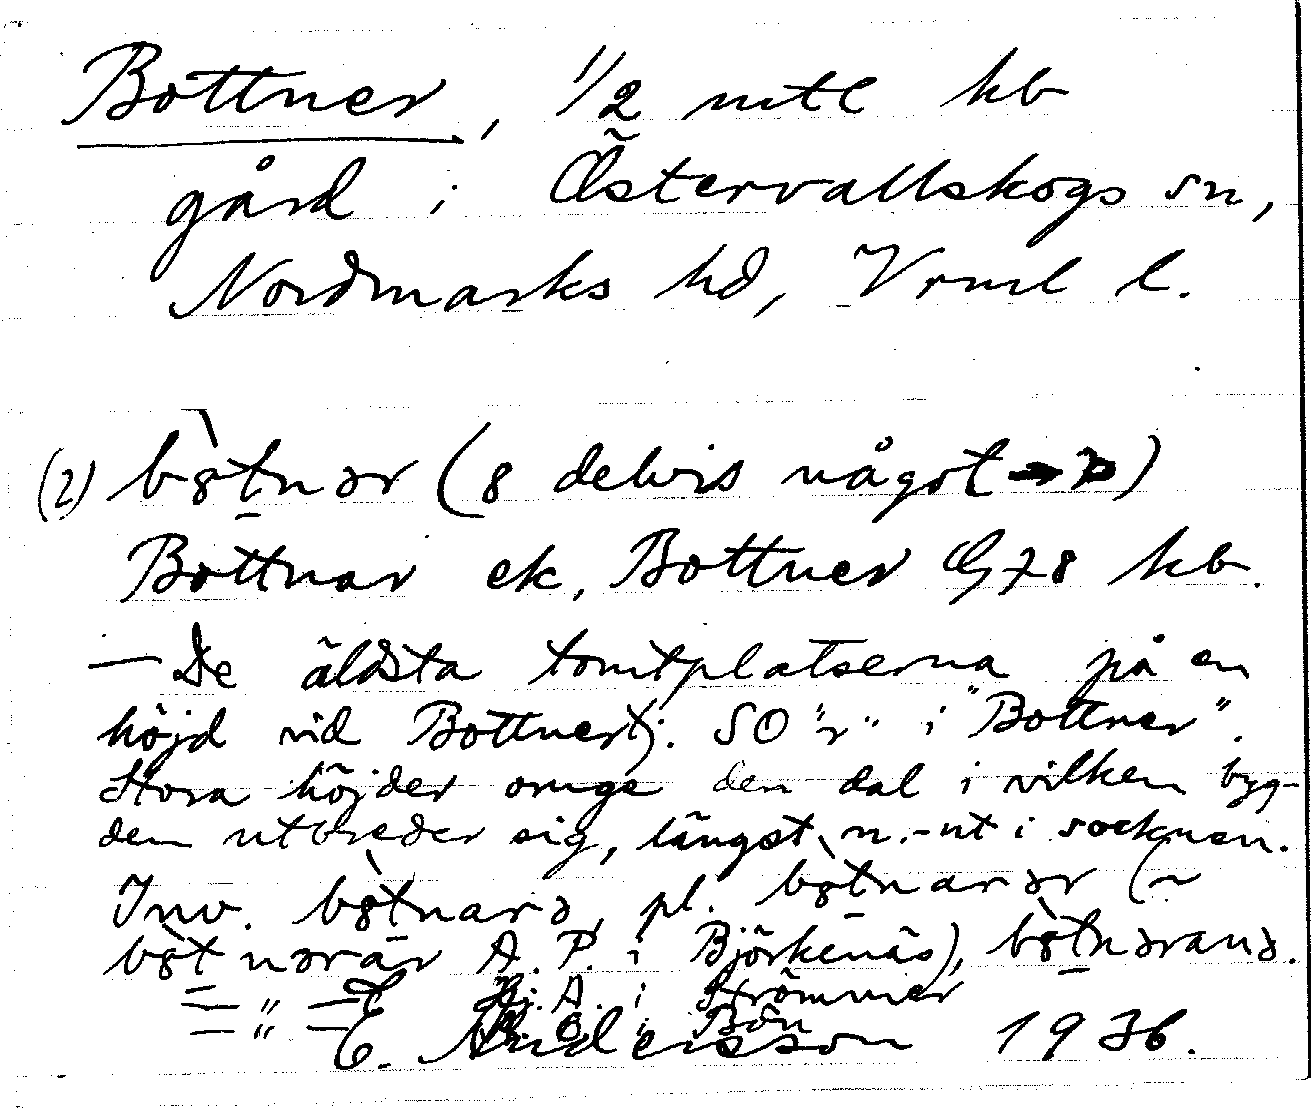 Bottner, 1/2 mtl kb
gård i Östervallskogs sn,
Nordmarks hd, Vrml l.
(2) bȣ̀tnər (ȣ delvis något → )
Bottnar ek, Bottner GK kb.
— De äldsta tomtplatserna på en
höjd vid Bottnertj. SO "r" i "Bottner".
Stora höjder omge den dal i vilken byg-
den utbreder sig, längst n.-ut i socknen.
Inv. bȣ̀tnarə, pl. bȣ̀tnarər (~
bȣ̀tnərär A. P. i Björkenäs), bȣ̀tnəranə.
— " — A. i Strömmer
— " — i Bön
E. Andersson 1936.